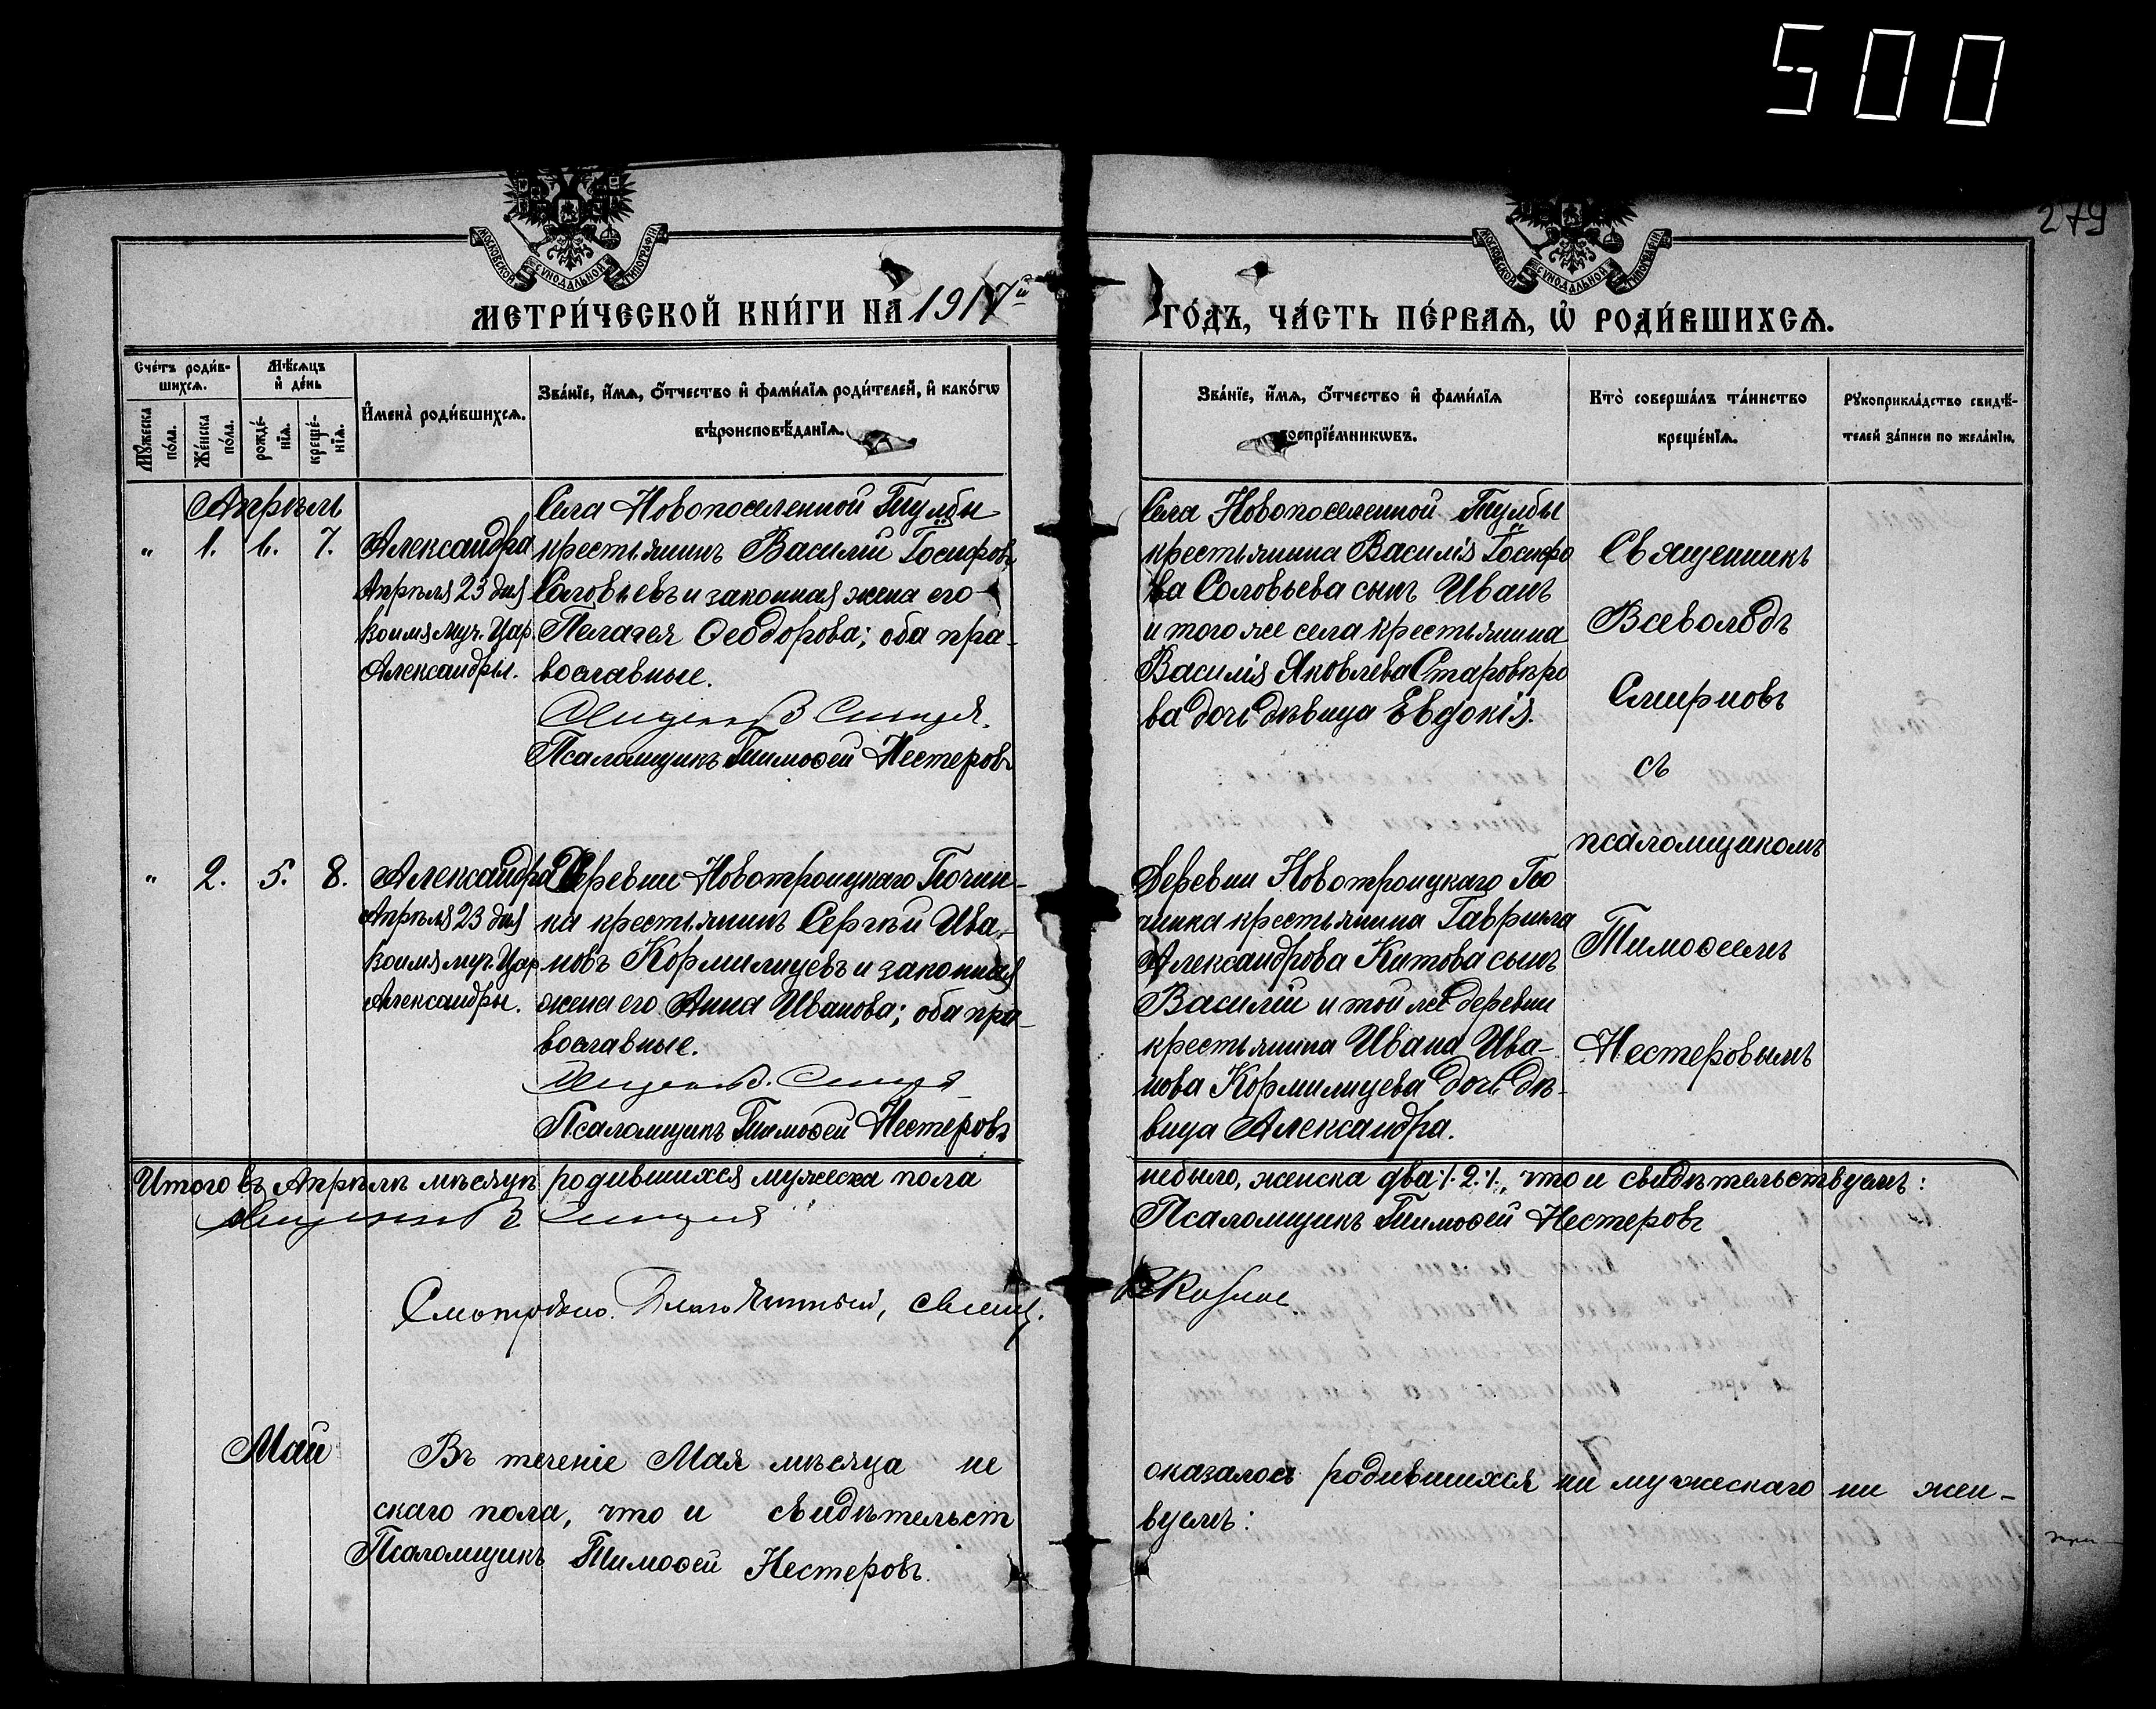 500
279
МОСКОВСКОЙ СѴНОДАЛЬНОЙ ТИПОГРАФІИ
МОСКОВСКОЙ СѴНОДАЛЬНОЙ ТИПОГРАФІИ
МЕТРИ́ЧЕСКОЙ КНИ́ГИ НА 1917й
ГО́ДЪ, ЧА́СТЬ ПЕ́РВАѦ, Ѡ҆ РОДИ́ВШИХСѦ.
Сче́тъ роди́в-
шихсѧ.
Мѣ́сѧцъ
и҆ де́нь
Мꙋ́жеска
по́ла.
Же́нска
по́ла.
рожде́-
нїѧ.
креще́-
нїѧ.
И҆мена̀ роди́вшихсѧ.
Зва́нїе, и҆́мѧ, ѻ҆́тчество и҆ фами́лїѧ роди́телей, и҆ како́гѡ
вѣроисповѣ́данїѧ.
Зва́нїе, и҆́мѧ, ѻ҆́тчество и҆ фами́лїѧ
воспрїе́мникѡвъ.
Кто̀ соверша́лъ та́инство
креще́нїѧ.
Рꙋкоприкла́дство свидѣ́-
телей за́писи по жела́нїю.
Апрѣль
" 1. 6. 7.
Александра
Апрѣля 23 дня
во имя муч. Цар.
Александры.
Села Новопоселенной Тумбы
крестьянинъ Василій Іосифовъ
Соловьевъ и законная жена его
Пелагея Ѳеодорова; оба пра-
вославные.
Псаломщикъ Тимоѳей Нестеровъ
Села Новопоселенной Тумбы
крестьянина Василія Іосифо
ва Соловьева сынъ Иванъ
и того же села крестьянина
Василія Яковлева Старовѣро
ва дочь дѣвица Евдокія.
Священникъ
Всеволодъ
Смирновъ
съ
псаломщикомъ
Тимоѳеемъ
Нестеровымъ
" 2. 5. 8.
Александра
Апрѣля 23 дня
во имя муч. Цар
Александры.
Деревни Новотроицкаго Почин-
ка крестьянинъ Сергѣй Ива-
новъ Кормилицевъ и законная
жена его Анна Иванова; оба пра-
вославные.
Псаломщикъ Тимоѳей Нестеровъ
Деревни Новотроицкаго По
чинка крестьянина Гавриила
Александрова Китова сынъ
Василій и той же деревни
крестьянина Ивана Ива-
нова Кормилицева дочь дѣ-
вица Александра.
Итого въ Апрѣлѣ мѣсяцѣ родившихся мужеска пола
небыло, женска два /:2:/, что и свидѣтельствуемъ:
Псаломщикъ Тимоѳей Нестеровъ
Смотрѣно. Благочинный, свящ.
Май
Въ теченіе Мая мѣсяца не
оказалось родившихся ни мужескаго ни жен-
скаго пола, что и свидѣтельст
вуемъ:
Псаломщикъ Тимоѳей Нестеровъ.